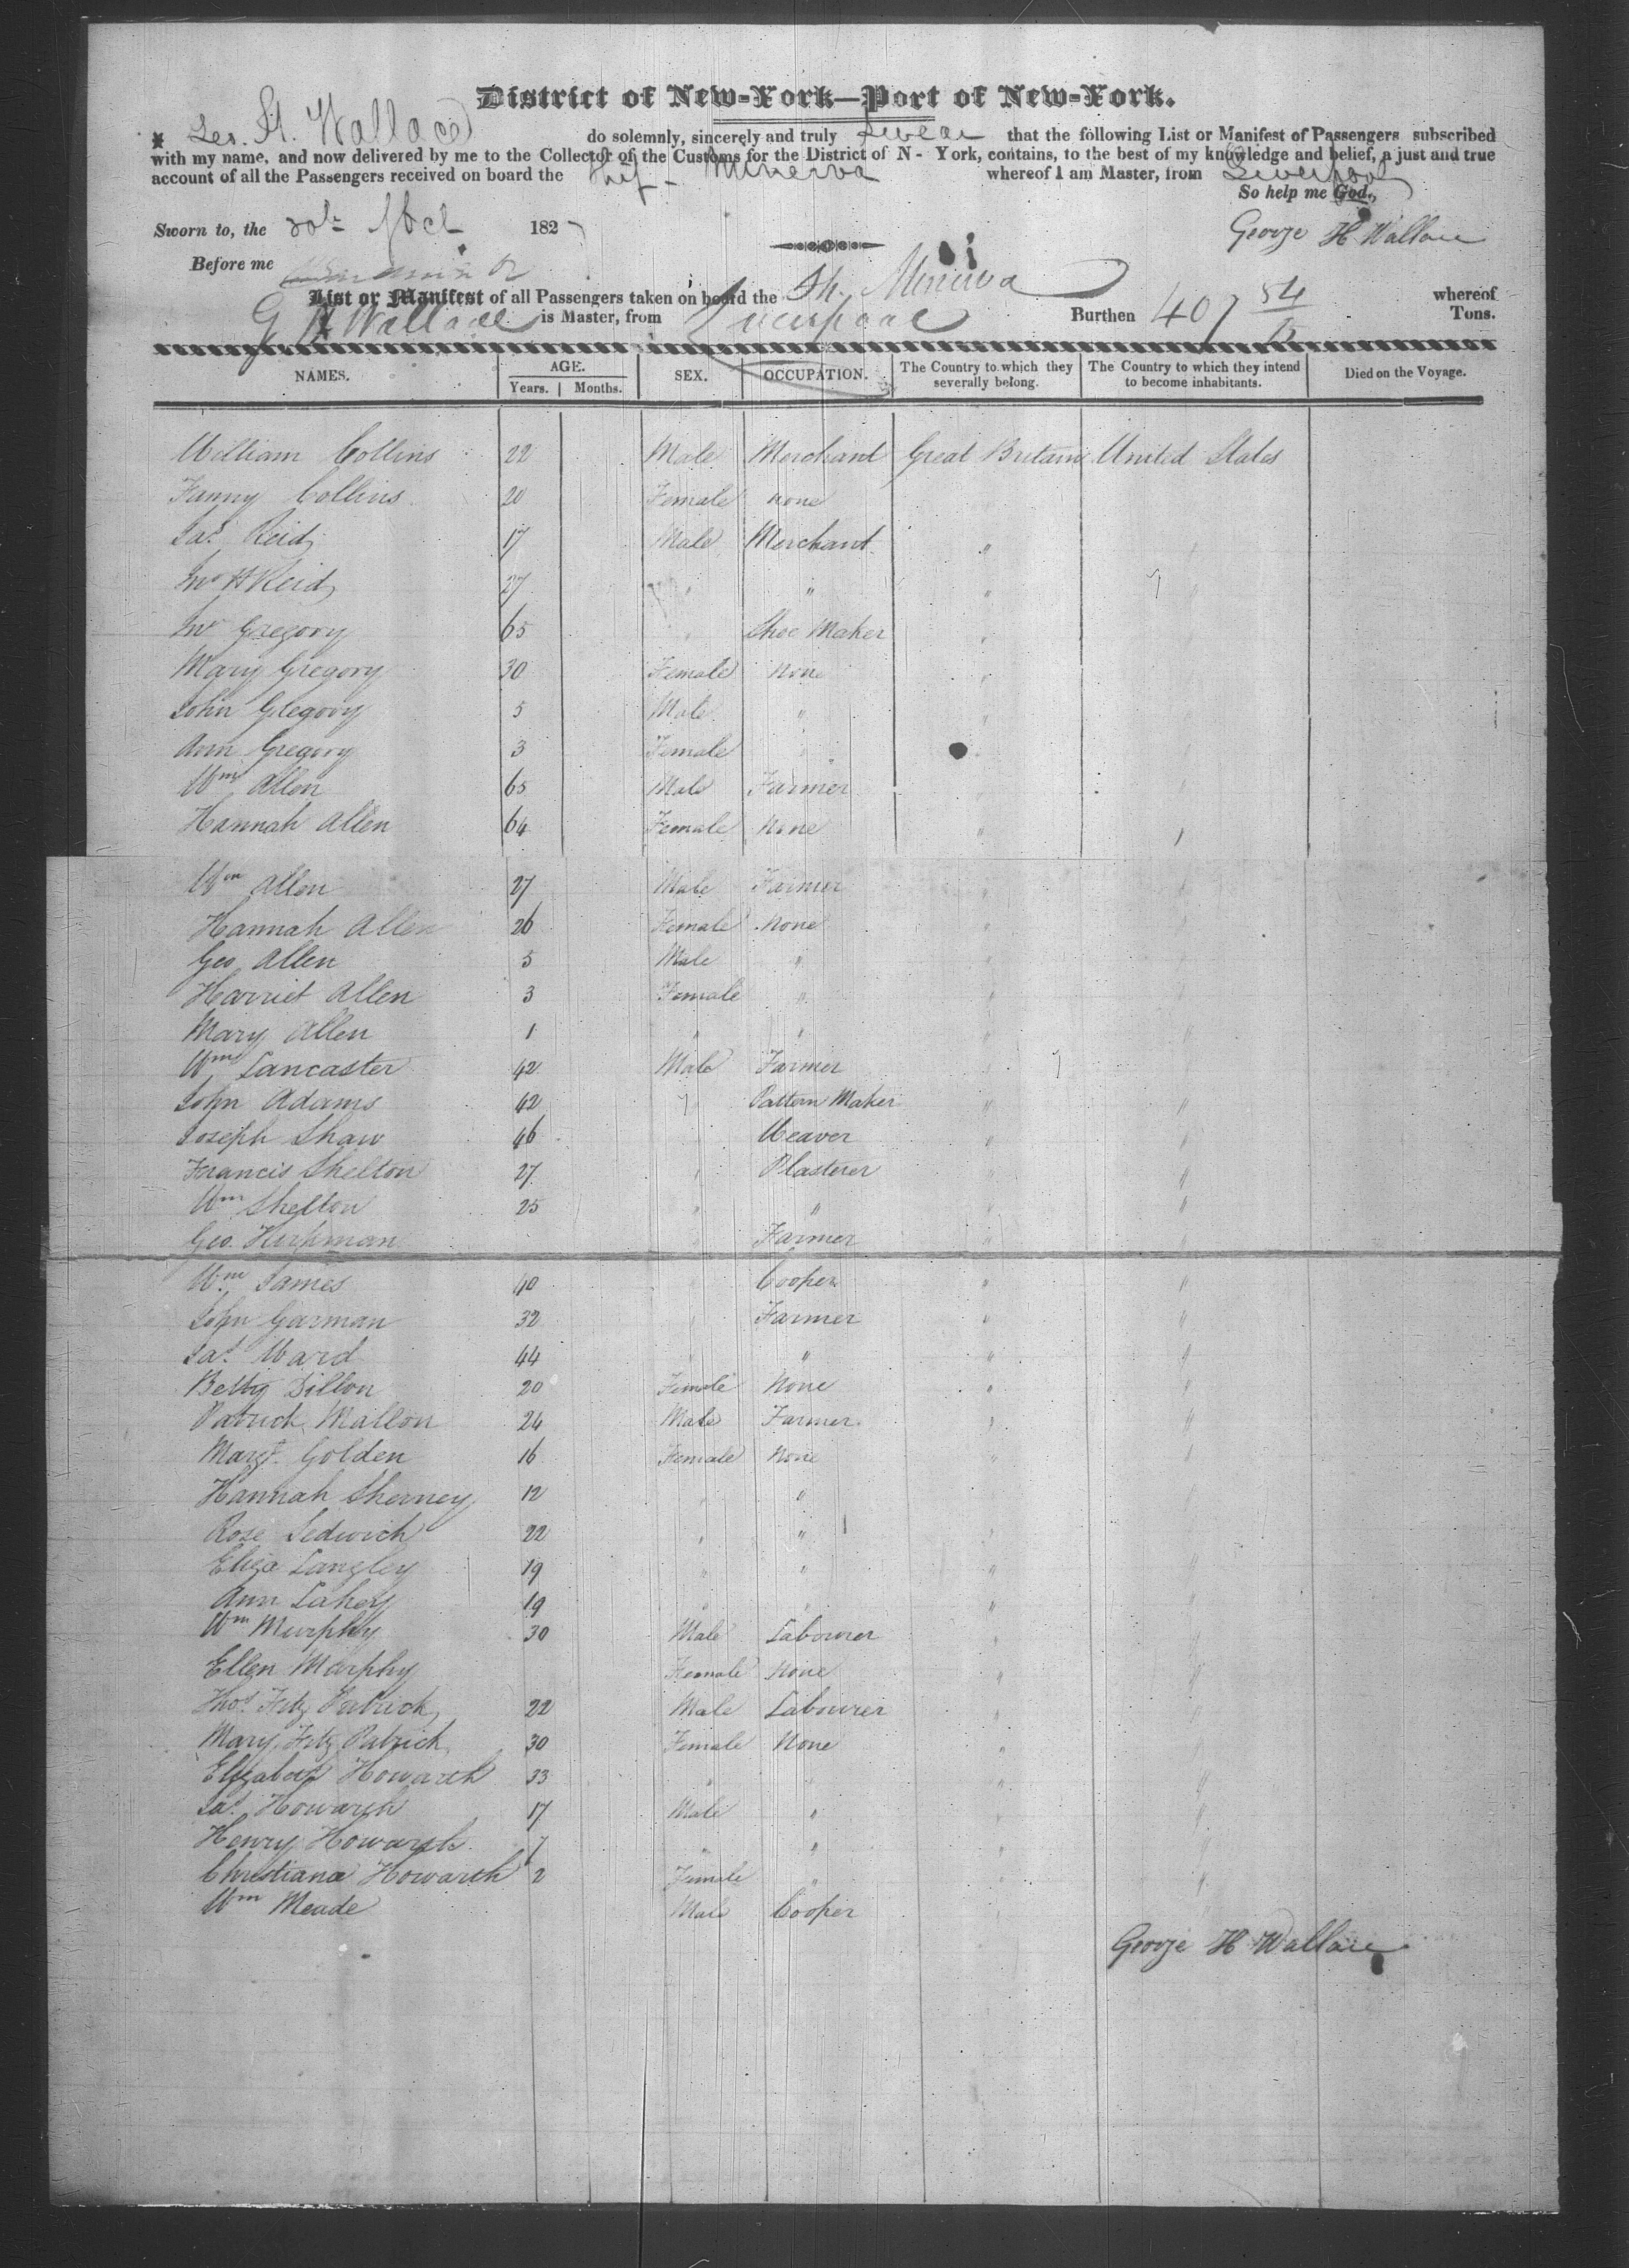 District of New-York—Port of New-York.
Geo. H. Wallace do solemnly, sincerely and truly Swear that the following List or Manifest of Passengers subscribed
with my name, and now delivered by me to the Collector of the Customs for the District of N - York, contains, to the best of my knowledge and belief, a just and true
account of all the Passengers received on board the Ship Minerva whereof I am Master, from Liverpool
So help me God.
Sworn to, the 20th Octr 1827
George H Wallace
Before me
List or Manifest of all Passengers taken on board the Sh. Minerva whereof
G H Wallace is Master, from Liverpool Burthen 407 54 Tons.
NAMES. AGE. Years. Months. SEX. OCCUPATION. The Country to which they severally belong. The Country to which they intend to become inhabitants. Died on the Voyage.
William Collins 22 Male Merchant Great Britain United States
Fanny Collins 20 Female none
Jas. Reid 17 Male Merchant "
Jno H Reid 27 " " "
Jno Gregory 65 " Shoe Maker "
Mary Gregory 30 Female None "
John Gregory 5 Male " "
Ann Gregory 3 Female "
Wm Allen 65 Male Farmer "
Hannah Allen 64 Female None " "
Wm Allen 27 Male Farmer " "
Hannah Allen 26 Female None " "
Geo Allen 5 Male " " "
Harriet Allen 3 Female " " "
Mary Allen 1 " " " "
Wm Lancaster 42 Male Farmer " "
John Adams 42 " Pattern Maker " "
Joseph Shaw 46 " Weaver " "
Francis Shelton 27 " Plasterer " "
Wm Shelton 25 " " " "
Geo. Hickman " Farmer " "
Wm James 40 " Cooper " "
John Garman 32 " Farmer " "
Jas. Ward 44 " " " "
Betty Dillon 20 Female None " "
Patrick Mallon 24 Male Farmer " "
Margt. Golden 16 Female None " "
Hannah Sherney 12 " " "
Rose Sedwich 22 " " "
Eliza Langley 19 " " " "
Ann Lahey 19 " " " "
Wm Murphy 30 Male Labourer " "
Ellen Murphy Female None " "
Thos. Fitz Patrick 22 Male Labourer " "
Mary Fitz Patrick 30 Female None " "
Elizabeth Howarth 33 " " " "
Jas. Howarth 17 Male " " "
Henry Howarth 7 " " " "
Christiana Howarth 2 Female " " "
Wm Meade Male Cooper " "
George H Wallace